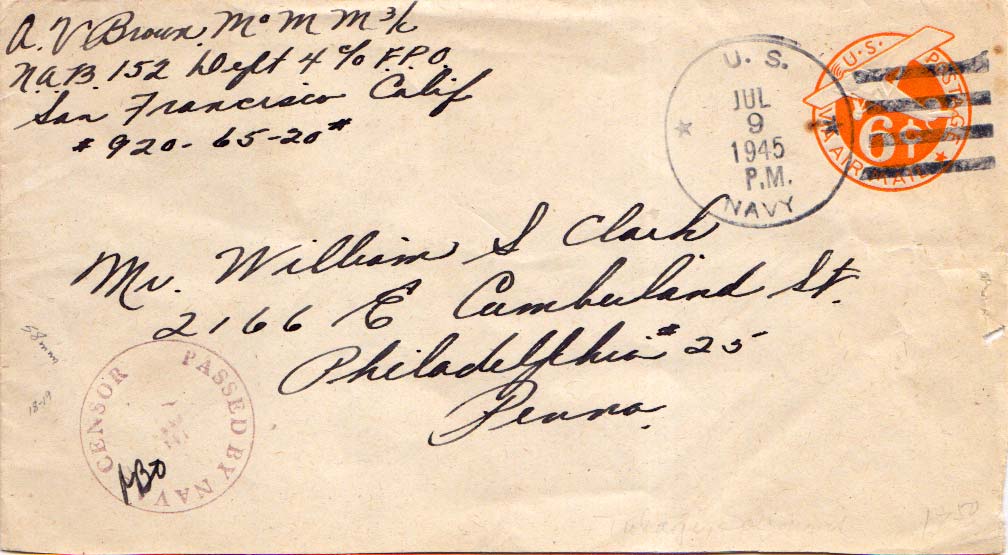 A. V. Brown Mo M M 3/c
N.A.B. 152 Dept 4 c/o F.P.O.
San Francisco Calif
# 920-65-20 #
U. S.
JUL
9
1945
P.M.
NAVY
U.S. POSTAGE
6¢
VIA AIR MAIL
Mr. William S Clark
2166 E Cumberland St.
Philadelphia # 25
Penna.
58mm
18-19
PASSED BY NAV CENSOR
1450